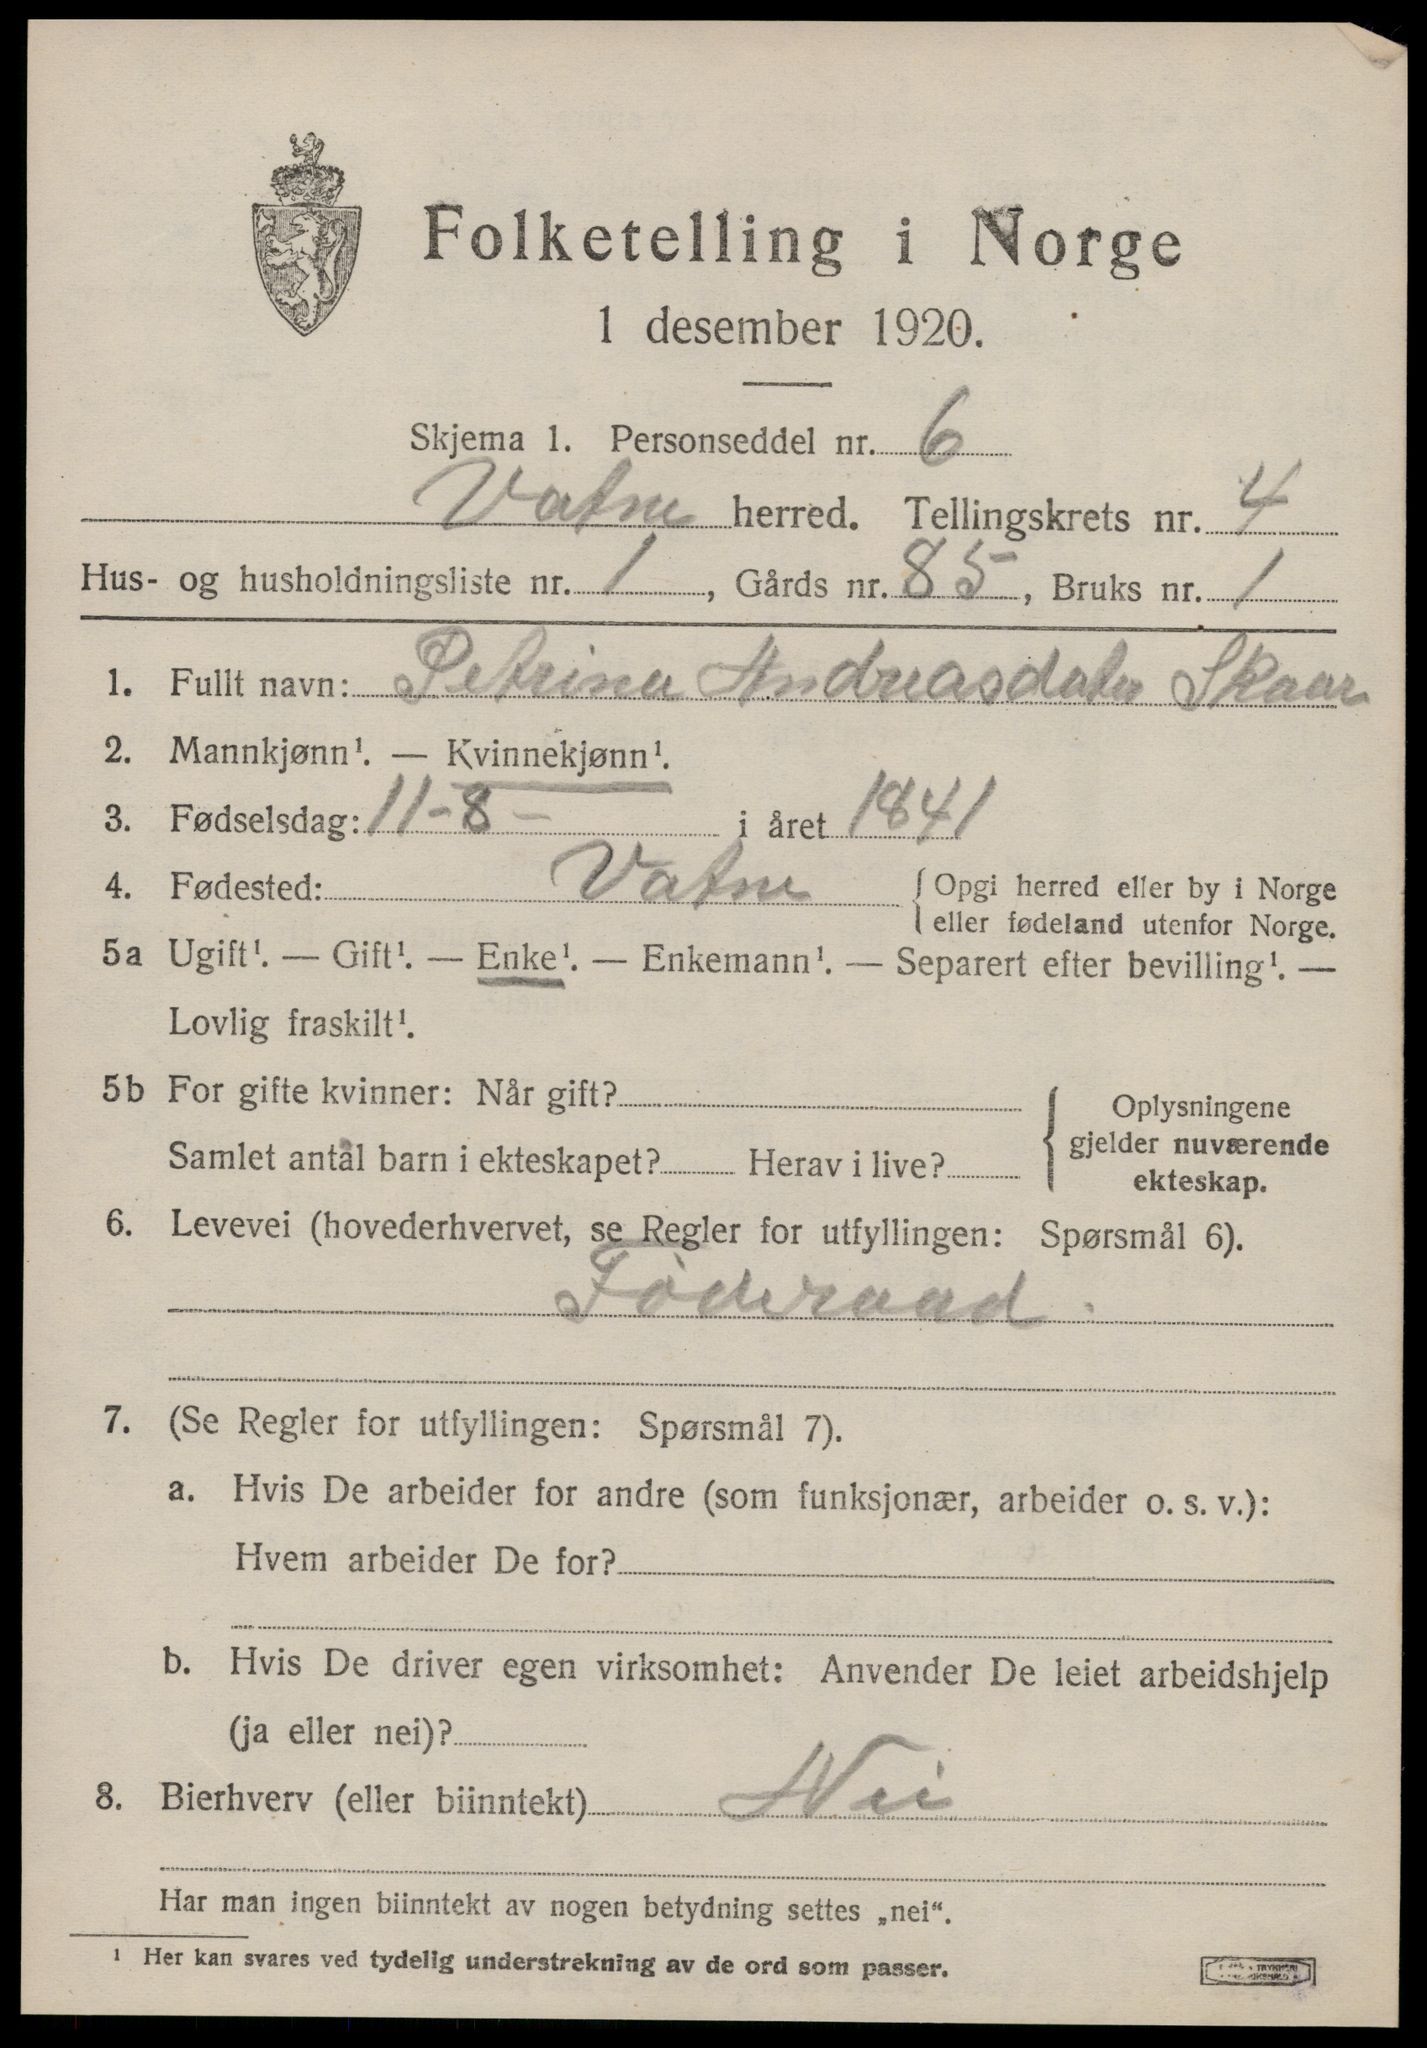 Folketelling i Norge
1 desember 1920.
Skjema 1. Personseddel nr. 6
Vatne herred. Tellingskrets nr. 4
Hus- og husholdningsliste nr. 1, Gårds nr. 85, Bruks nr. 1
1. Fullt navn: Petrine Andreasdater Skaar
2. Mannkjønn¹. — Kvinnekjønn¹.
3. Fødselsdag: 11-8- i året 1841
4. Fødested: Vatne { Opgi herred eller by i Norge
eller fødeland utenfor Norge.
5a Ugift¹. — Gift¹. — Enke¹. — Enkemann¹. — Separert efter bevilling¹. —
Lovlig fraskilt¹.
5b For gifte kvinner: Når gift?
Samlet antal barn i ekteskapet? Herav i live?
{ Oplysningene
gjelder nuværende
ekteskap.
6. Levevei (hovederhvervet, se Regler for utfyllingen: Spørsmål 6).
Føderaad.
7. (Se Regler for utfyllingen: Spørsmål 7).
a. Hvis De arbeider for andre (som funksjonær, arbeider o. s. v.):
Hvem arbeider De for?
b. Hvis De driver egen virksomhet: Anvender De leiet arbeidshjelp
(ja eller nei)?
8. Bierhverv (eller biinntekt) Nei
Har man ingen biinntekt av nogen betydning settes „nei“.
¹ Her kan svares ved tydelig understrekning av de ord som passer.